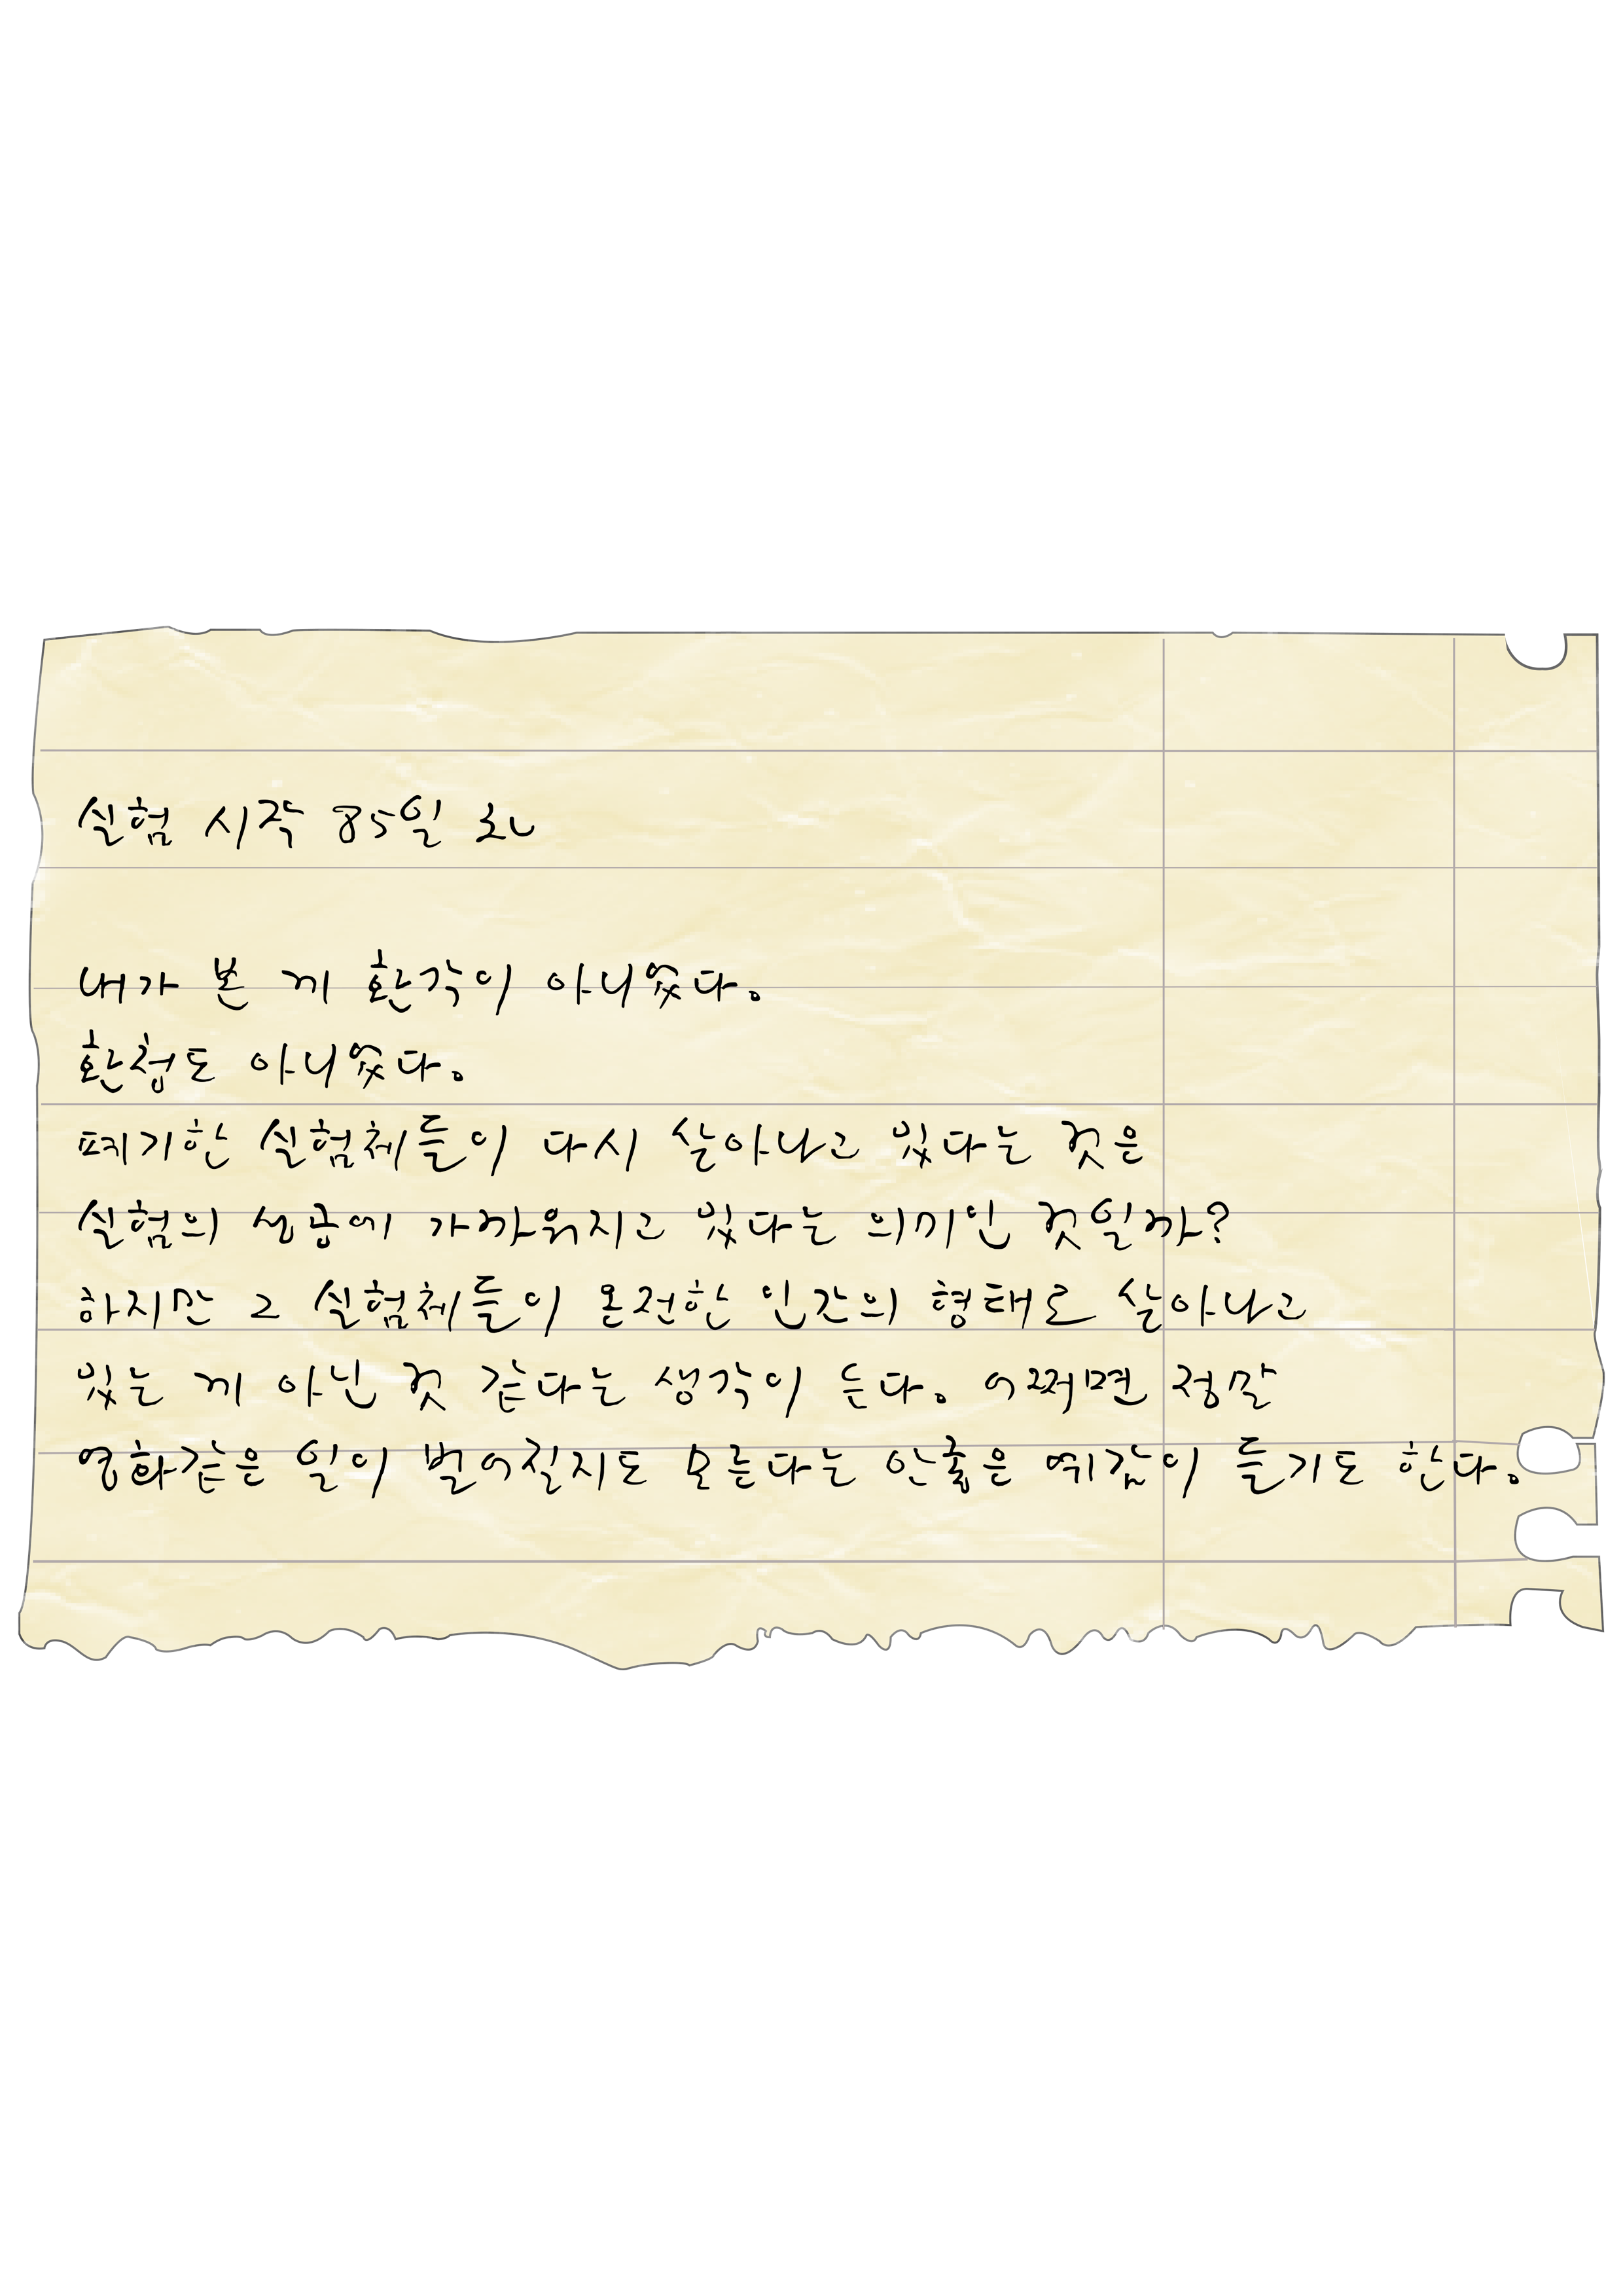 실험 시작 85일 차
내가 본 게 환각이 아니었다.
환청도 아니었다.
폐기한 실험체들이 다시 살아나고 있다는 것은
실험의 성공에 가까워지고 있다는 의미인 것일까?
하지만 그 실험체들이 온전한 인간의 형태로 살아나고
있는 게 아닌 것 같다는 생각이 든다. 어쩌면 정말
영화같은 일이 벌어질지도 모른다는 안좋은 예감이 들기도 한다.